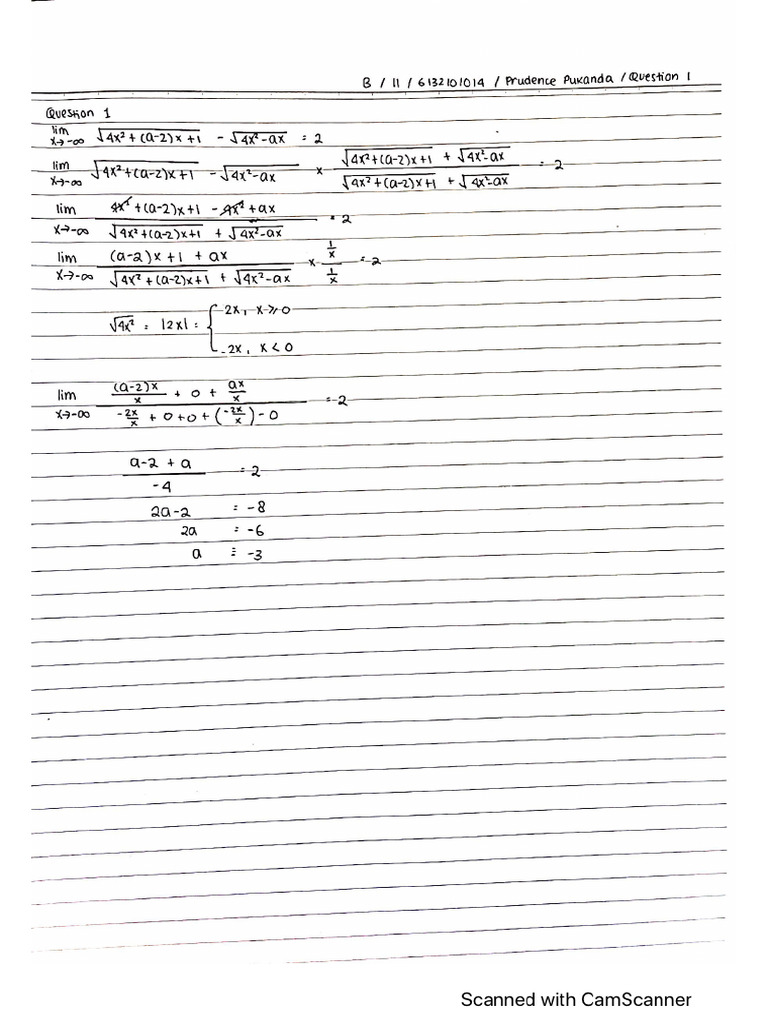 B / 11 / 6132101014 / Prudence Pukanda / Question 1
Question 1
lim x→-∞ √(4x²+(a-2)x+1) - √(4x²-ax) = 2
lim x→-∞ √(4x²+(a-2)x+1) - √(4x²-ax) × (√(4x²+(a-2)x+1) + √(4x²-ax)) / (√(4x²+(a-2)x+1) + √(4x²-ax)) = 2
lim x→-∞ (4x²+(a-2)x+1 - 4x²+ax) / (√(4x²+(a-2)x+1) + √(4x²-ax)) = 2
lim x→-∞ ((a-2)x+1+ax) / (√(4x²+(a-2)x+1) + √(4x²-ax)) × (1/x) / (1/x) = 2
√(4x²) = |2x| = { 2x, x≥0
-2x, x<0
lim x→-∞ ((a-2)x/x + 0 + ax/x) / (-2x/x + 0+0+(-2x/x)-0) = 2
(a-2+a) / -4 = 2
2a-2 = -8
2a = -6
a = -3
Scanned with CamScanner